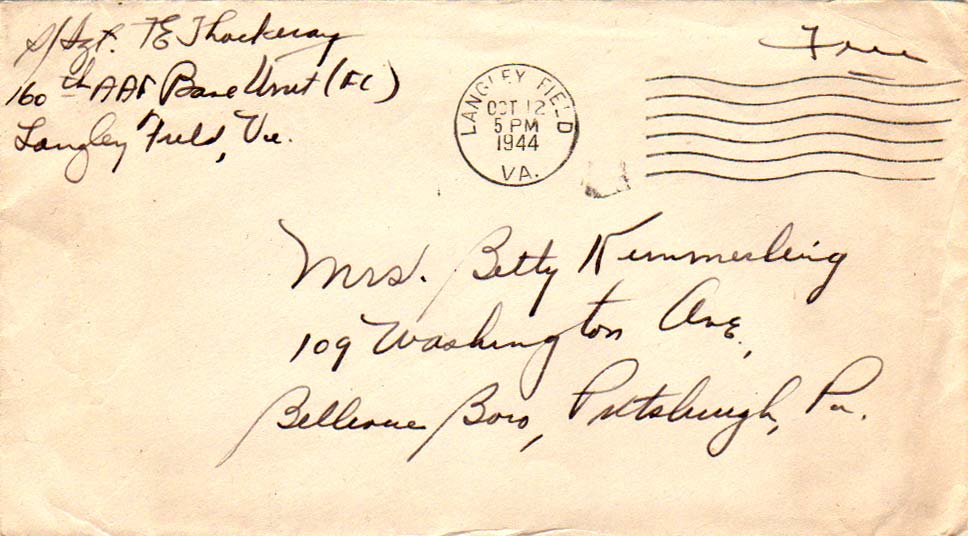 S/Sgt. TE Thackeray
160th AAF Base Unit (FC)
Langley Field, Va.
Free
LANGLEY FIELD
OCT 12
5 PM
1944
VA.
Mrs. Betty Kemmerling
109 Washington Ave.,
Bellevue Boro, Pittsburgh, Pa.